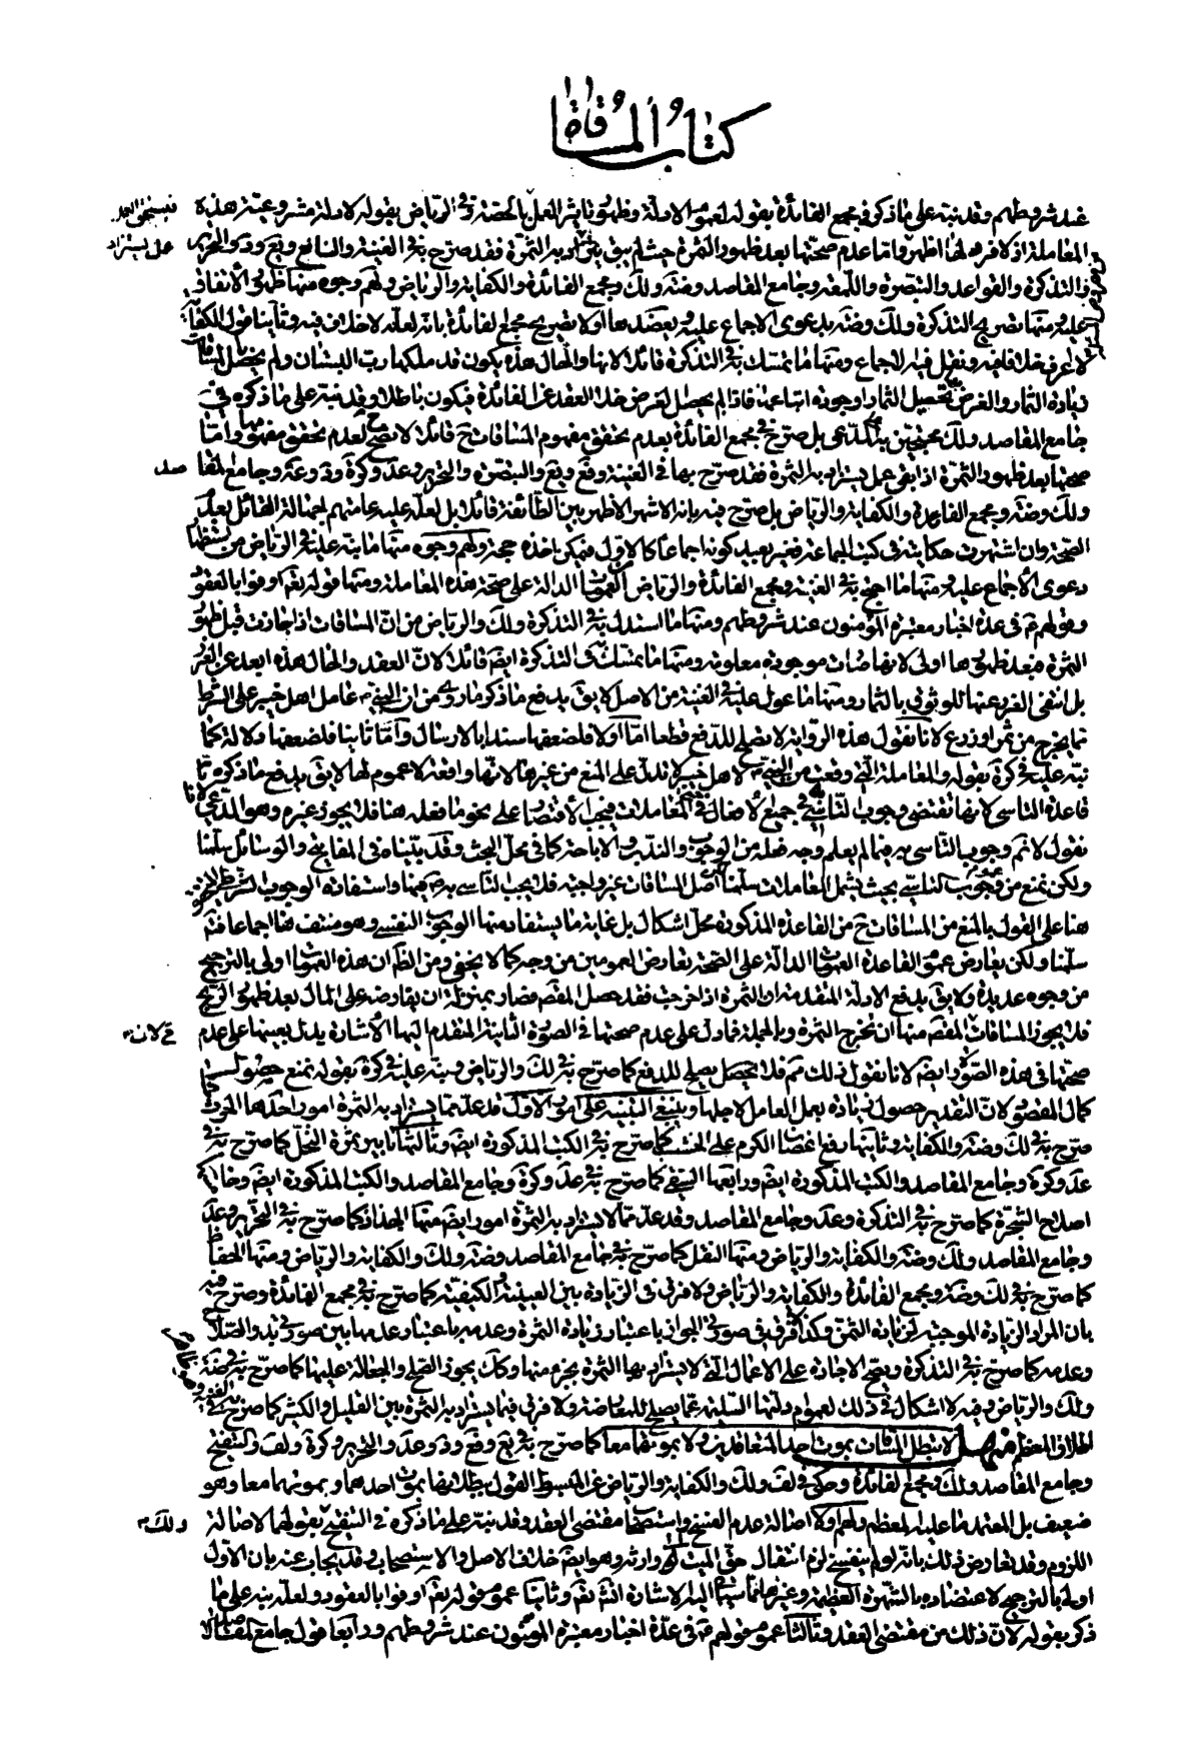 كتاب المساقاة
عند شروطهم وقد نبّه على ما ذكر في مجمع الفائدة بقوله لعموم الادلة وظهور تاثير العمل بالحصة وفى الرياض بقوله لادلة مشروعية هذه
المعاملة اذ لا فرد لها اظهر واما عدم صحّتها بعد ظهور الثمرة حيث لم يبق عمل يزاد به الثمرة فقد صرّح به فى الغنية والنافع ويع ود والتحرير
والتذكرة والقواعد والتبصرة واللمعة وجامع المقاصد وضة ولك ومجمع الفائدة والكفاية والرياض ولهم وجوه منها ظهور الاتفاق
عليه ومنها تصريح التذكرة ولك وضة بدعوى الاجماع عليه ويعضدها اولا تصريح مجمع الفائدة بانه لعله لا خلاف فيه وثانيا قول الكفاية
لا اعرف خلافا فيه ونقل فيه الاجماع ومنها ما تمسّك به فى التذكرة قائلا لانها والحال هذه يكون قد ملكها رب البستان ولم يحصل بالمساقاة
زيادة الثمار والغرض تحصيل الثمار او جودة ايناعها فاذا لم يحصل لغرض خلا العقد عن الفائدة فيكون باطلا وقد نبّه على ما ذكره فى
جامع المقاصد ولك محتجّين به المدّعى بل صرّح فى مجمع الفائدة بعدم تحقق مفهوم المساقات ح قائلا لا تصح لعدم تحقق مفهومها وامّا
صحتها بعد ظهور الثمرة اذا بقى عمل يستزاد به الثمرة فقد صرّح بها فى الغنية وفع ويع والتبصرة والتحرير وعد وكرة ود وعة وجامع المقاصد
ولك وضة ومجمع الفائدة والكفاية والرياض بل صرّح فيه بانه الاشهر الاظهر بين الطائفة قائلا بل لعله عليه عامتهم لجهالة القائل بعدم
الصّحة وان اشتهرت حكايته فى كتب الجماعة فغير بعيد كونه اجماعا كالاول فيمكن اخذه حجة ولهم وجوه منها ما نبّه عليه فى الرياض من
دعوى الاجماع عليه ومنها ما احتج به فى الغنية ومجمع الفائدة والرياض من العمومات الدالة على صحّة هذه المعاملة ومنها قوله تعالى اوفوا بالعقود
وقولهم ع فى عدة اخبار معتبرة المؤمنون عند شروطهم ومنها ما استدل به فى التذكرة ولك والرياض من انّ المساقات اذا جازت قبل ظهور
الثمرة فبعد ظهورها اولى لانها صارت موجودة معلومة ومنها ما تمسّك به فى التذكرة ايضا قائلا لانّ العقد والحال هذه ابعد عن الغرر
بل انتفى الغرر عنها للوثوق بالثمار ومنها ما عول عليه فى الغنية من الاصل لا يق يدفع ما ذكر ما روى من ان النبى ص عامل اهل خيبر على الشطر
مما يخرج من ثمر او زرع لانا نقول هذه الرواية لا تصلح للدفع قطعا امّا اولا فلضعفها سندا بالارسال وامّا ثانيا فلضعفها دلالة كما
نبّه عليه فى كرة بقوله والمعاملة التى وقعت من النبى ص لاهل خيبر لا تدل على المنع من غيرها لانها واقعة لا عموم لها لا يق يدفع ما ذكره
قاعدة التاسى لانها تقتضى وجوب التاسى فى جميع الافعال حتى المعاملات فيجب الاقتصار على نحو ما فعله هنا فلا يجوز غيره وهو المدّعى لانا
نقول لا نم وجوب التاسى به فيما لم يعلم وجه فعله من الوجوب والندب والاباحة كما فى محلّ البحث وقد بيّناه فى المفاتيح والوسائل سلّمنا
ولكن نمنع من وجوب التاسى بحيث يشمل المعاملات سلّمنا لكن اصل المساقات غير واجبة فلا يجب التاسى به ص فيها واستفادة الوجوب الشرطى
هنا على القول بالمنع من المساقات ح من القاعدة المذكورة محلّ اشكال بل غاية ما يستفاد منها الوجوب النفسى وهو منتف هنا اجماعا فتم
سلّمنا ولكن يعارض عموم القاعدة العمومات الدالة على الصّحة تعارض العمومين من وجه كما لا يخفى ومن الظّ ان هذه العمومات اولى بالترجيح
من وجوه عديدة ولا يق يدفع الادلة المتقدمة ان الثمرة اذا خرجت فقد حصل المقصود فصار بمنزلة ان يقارضه على المال بعد ظهور الربح
فلا يجوز المساقات لان المقصود منها ان تخرج الثمرة وبالجملة فما دل على عدم صحتها فى الصورة الثانية المتقدم اليها الاشارة يدل بعينه على عدم
صحتها فى هذه الصّورة ايضا لانا نقول ذلك مم فلا يحصل ... يصلح للدفع كما صرّح به فى لك والرياض ونبّه عليه فى كرة بقوله نمنع حصول
كمال المقصود لانّ التقدير حصول زيادة بعمل العامل لاجلها وينبغى التنبيه على امور الاول قد عد مما يستزاد به الثمرة امور احدها الحرث
صرّح به فى لك وضة والكفاية وثانيها رفع اغصان الكرم على الخشب كما صرّح به فى الكتب المذكورة ايضا وثالثها تابير ثمرة النخل كما صرّح به فى
عد وكرة وجامع المقاصد والكتب المذكورة ايضا ورابعها السقى كما صرّح به فى عد وكرة وجامع المقاصد والكتب المذكورة ايضا وخامسها
اصلاح الشجرة كما صرّح به فى التذكرة وعد وجامع المقاصد وقد عد مما لا يستزاد به الثمرة امور ايضا منها الجذاذ كما صرّح به فى التحرير وعد
وجامع المقاصد ولك وضة والكفاية والرياض ومنها النقل كما صرّح به فى جامع المقاصد وضة ولك والكفاية والرياض ومنها الحفظ
كما صرّح به فى لك وضة ومجمع الفائدة والكفاية والرياض ولا فرق فى الزيادة بين العينية والكيفيّة كما صرّح به فى مجمع الفائدة وصرّح فيه
بان المراد الزيادة الموجبة لزيادة الثمن وكذا لا فرق فى صورتى الجواز باعتبار زيادة الثمرة وعدمه باعتبار عدمها بين صورتى بدو الصّلاح
وعدمه كما صرّح به فى التذكرة ويصحّ الاجارة على الاعمال التى لا يستزاد بها الثمرة بجزء منها وكك يجوز الصّلح والجعالة عليها كما صرّح به فى ضة
ولك والرياض وفيه لا اشكال فى ذلك لعموم ادلّتها السليمة عمّا يصلح للمعارضة ولا فرق فيما يستزاد به الثمرة بين القليل والكثير كما صرّح به فى
اطلاق المعظم منهل لا تبطل المساقات بموت احد المتعاقدين ولا بموتهما معا كما صرّح به فى يع وفع ود وعد والتحرير وكرة ولف والتنقيح
وجامع المقاصد ولك ومجمع الفائدة وحكى فى لف ولك والكفاية والرياض عن المبسوط القول ببطلانها بموت احدهما وبموتهما معا وهو
ضعيف بل المعتمد ما عليه المعظم ولهم اولا اصالة عدم الفسخ واستصحاب مقتضى العقد وقد نبّه على ما ذكره فى التنقيح بقولهما لاصالة
اللزوم وقد يعارض ذلك بانه لو لم ينفسخ لزم انتقال حقّ الميت الى وارثه وهو ايضا خلاف الاصل والاستصحاب وقد يجاب عنه بان الاول
اولى بالترجيح لاعتضاده بالشهرة العظيمة وغيرها مما سياتى اليه الاشارة انشاء الله تعالى وثانيا عموم قوله تعالى اوفوا بالعقود ولعله نبه على ما
ذكر بقوله لانّ ذلك من مقتضى العقد وثالثا عموم قولهم ع فى عدّة اخبار معتبرة المؤمنون عند شروطهم ورابعا قول جامع المقاصد